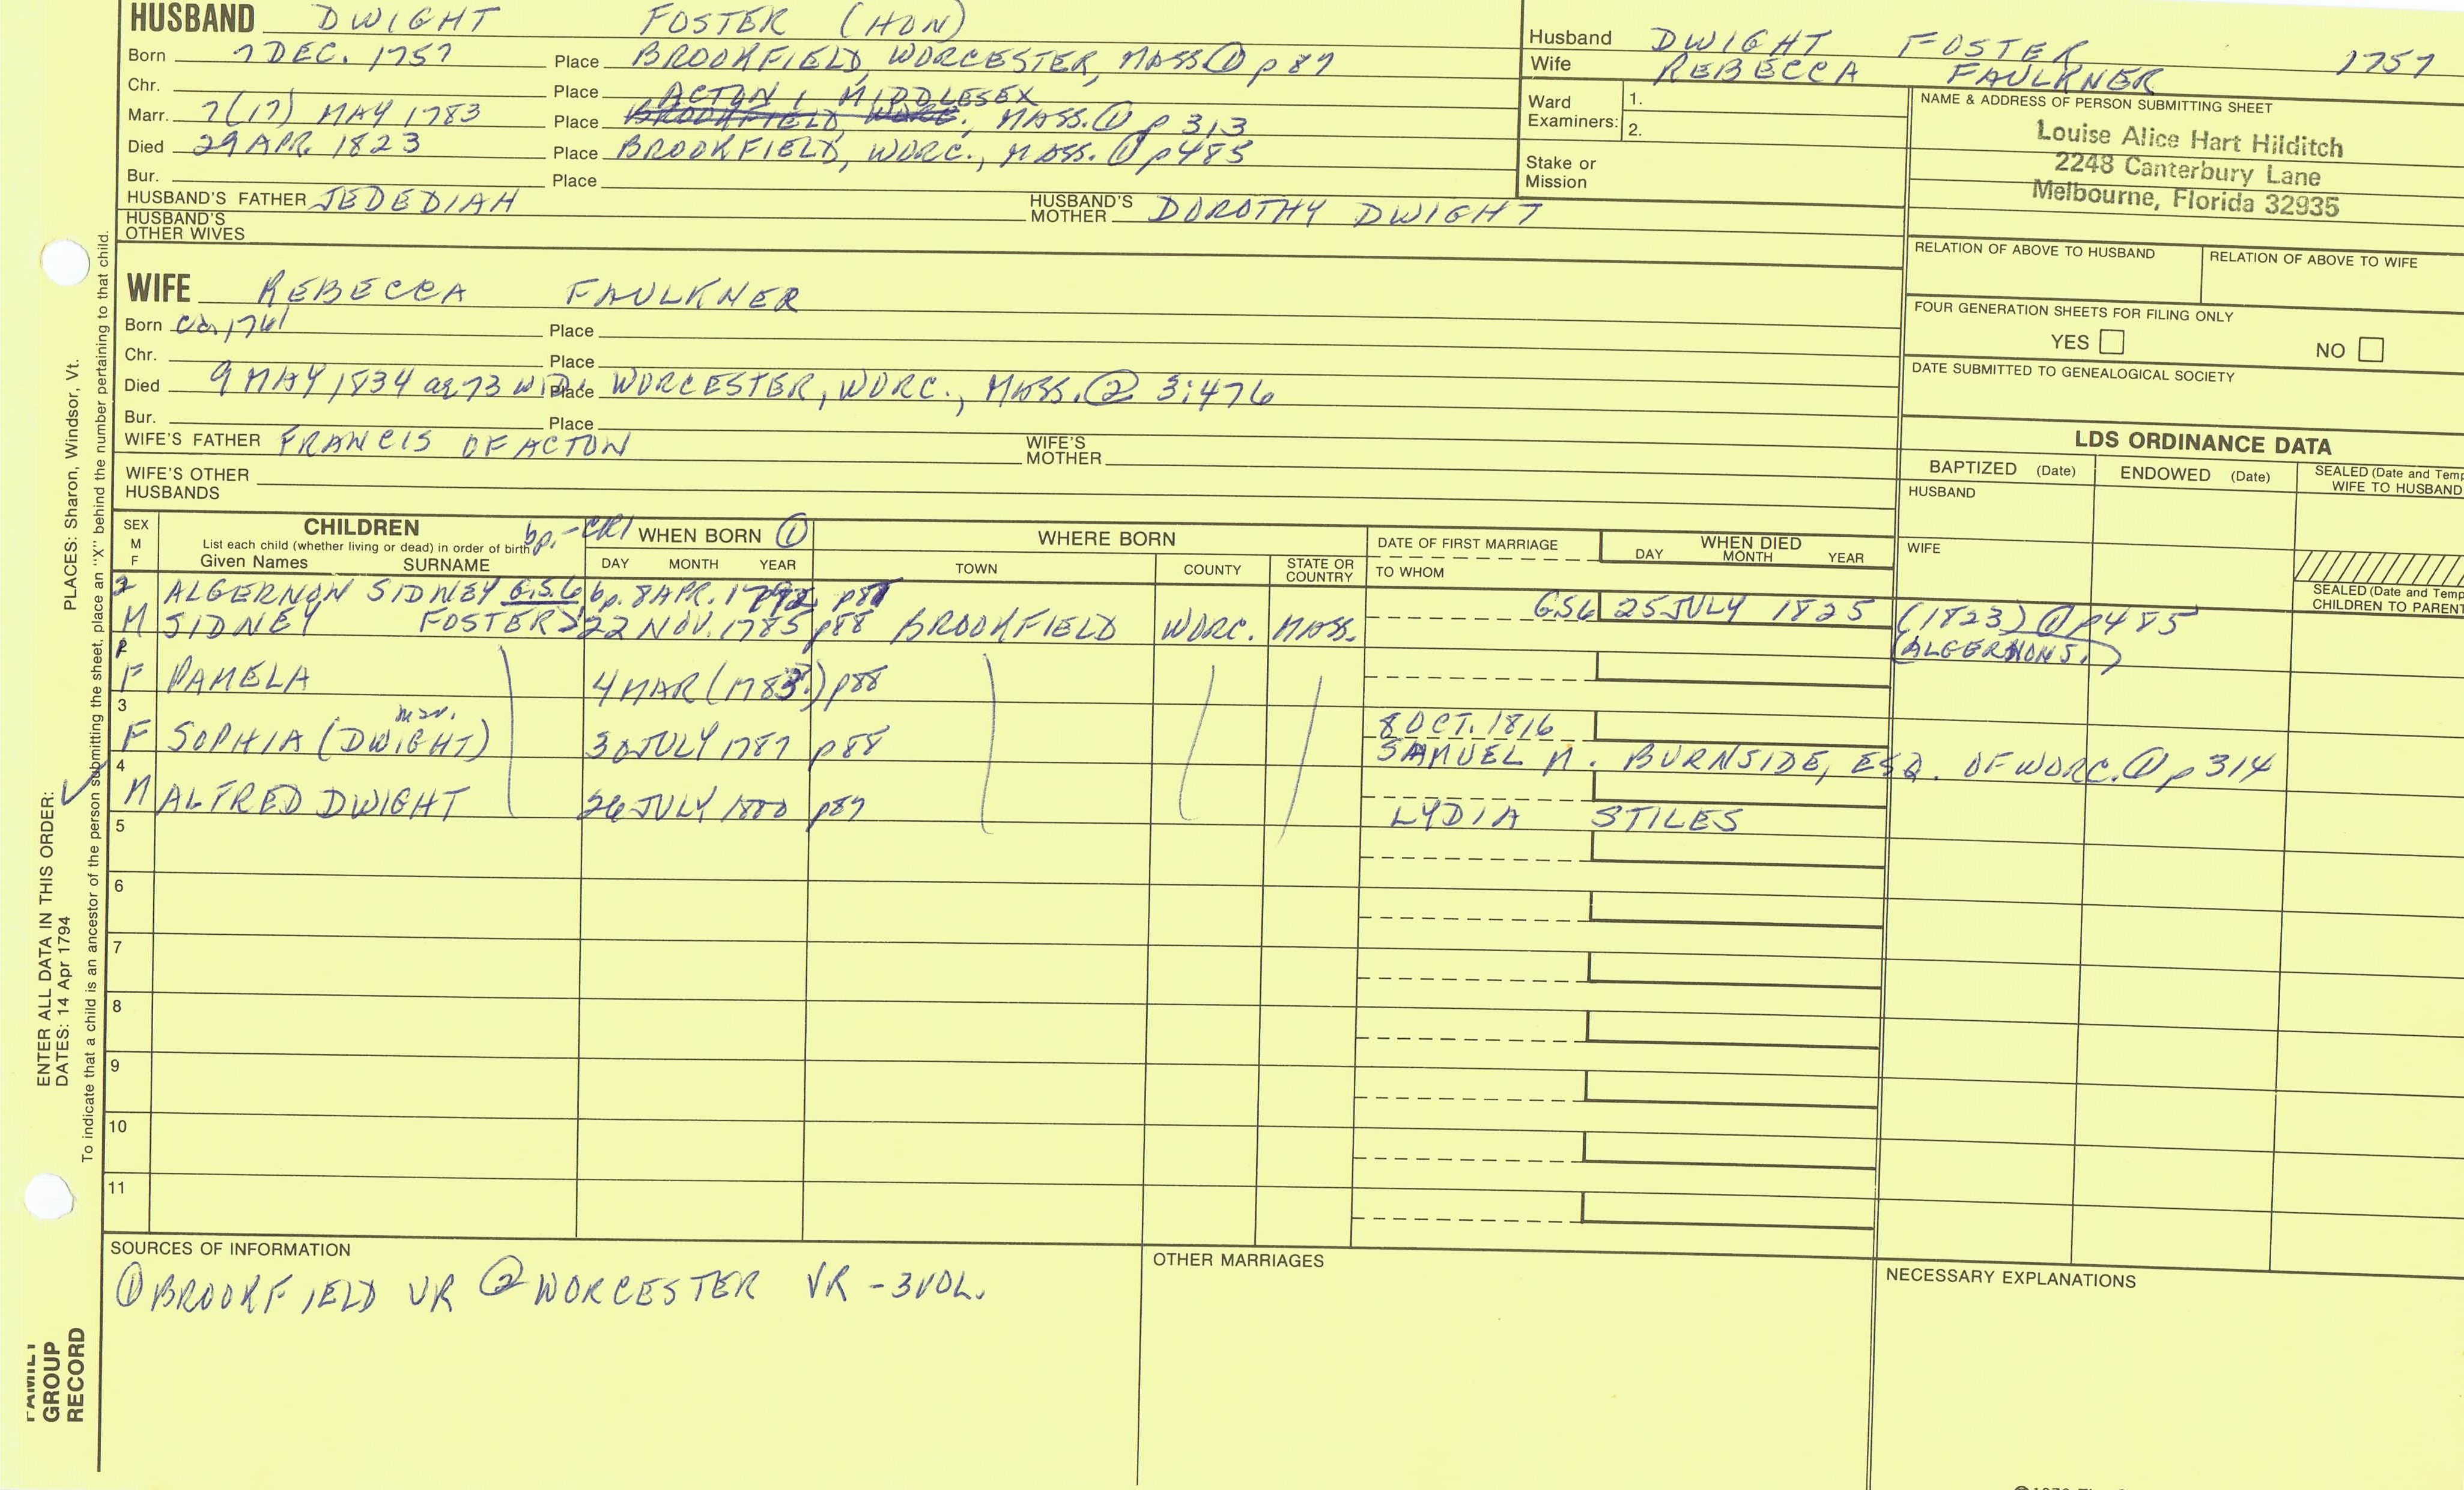 HUSBAND DWIGHT FOSTER (HON)
Born 7 DEC. 1757 Place BROOKFIELD, WORCESTER, MASS. ① p 87
Chr. Place ACTON, MIDDLESEX
Marr. 7(17) MAY 1783 Place BROOKFIELD, WORC., MASS. ① p 313
Died 29 APR. 1823 Place BROOKFIELD, WORC., MASS. ① p485
Bur. Place
HUSBAND'S FATHER JEDEDIAH HUSBAND'S MOTHER DOROTHY DWIGHT
HUSBAND'S OTHER WIVES
Husband DWIGHT FOSTER 1757
Wife REBECCA FAULKNER
Ward Examiners: 1.
2.
Stake or Mission
NAME & ADDRESS OF PERSON SUBMITTING SHEET
Louise Alice Hart Hilditch
2248 Canterbury Lane
Melbourne, Florida 32935
RELATION OF ABOVE TO HUSBAND RELATION OF ABOVE TO WIFE
FOUR GENERATION SHEETS FOR FILING ONLY
YES NO
DATE SUBMITTED TO GENEALOGICAL SOCIETY
WIFE REBECCA FAULKNER
Born ca. 1761 Place
Chr. Place
Died 9 MAY 1834 ag 73 wid. Place WORCESTER, WORC., MASS. ② 3:476
Bur. Place
WIFE'S FATHER FRANCIS OF ACTON WIFE'S MOTHER
WIFE'S OTHER HUSBANDS
LDS ORDINANCE DATA
BAPTIZED (Date) ENDOWED (Date) SEALED (Date and Temp
WIFE TO HUSBAND
HUSBAND
WIFE
SEALED (Date and Temp
CHILDREN TO PARENT
SEX M F
CHILDREN
List each child (whether living or dead) in order of birth
Given Names SURNAME
bp.-CR1 WHEN BORN ①
DAY MONTH YEAR
WHERE BORN
TOWN COUNTY STATE OR COUNTRY
DATE OF FIRST MARRIAGE
TO WHOM
WHEN DIED
DAY MONTH YEAR
2 ALGERNON SIDNEY G.S.6 bp. 8 APR. p87
M SIDNEY FOSTER 22 NOV. 1785 p88 BROOKFIELD WORC. MASS. GS6 25 JULY 1825 (1823) ① p485
(ALGERNON S.)
F PAMELA 4 MAR (1783.) p88
3 mar. 8 OCT. 1816
F SOPHIA (DWIGHT) 30 JULY 1787 p88 SAMUEL M. BURNSIDE, ESQ. OF WORC. ① p 314
4
M ALFRED DWIGHT 26 JULY 1800 p87 LYDIA STILES
5
6
7
8
9
10
11
SOURCES OF INFORMATION
① BROOKFIELD VR ② WORCESTER VR - 3 VOL.
OTHER MARRIAGES
NECESSARY EXPLANATIONS
ENTER ALL DATA IN THIS ORDER:
DATES: 14 Apr 1794 PLACES: Sharon, Windsor, Vt.
To indicate that a child is an ancestor of the person submitting the sheet, place an "X" behind the number pertaining to that child.
FAMILY
GROUP
RECORD